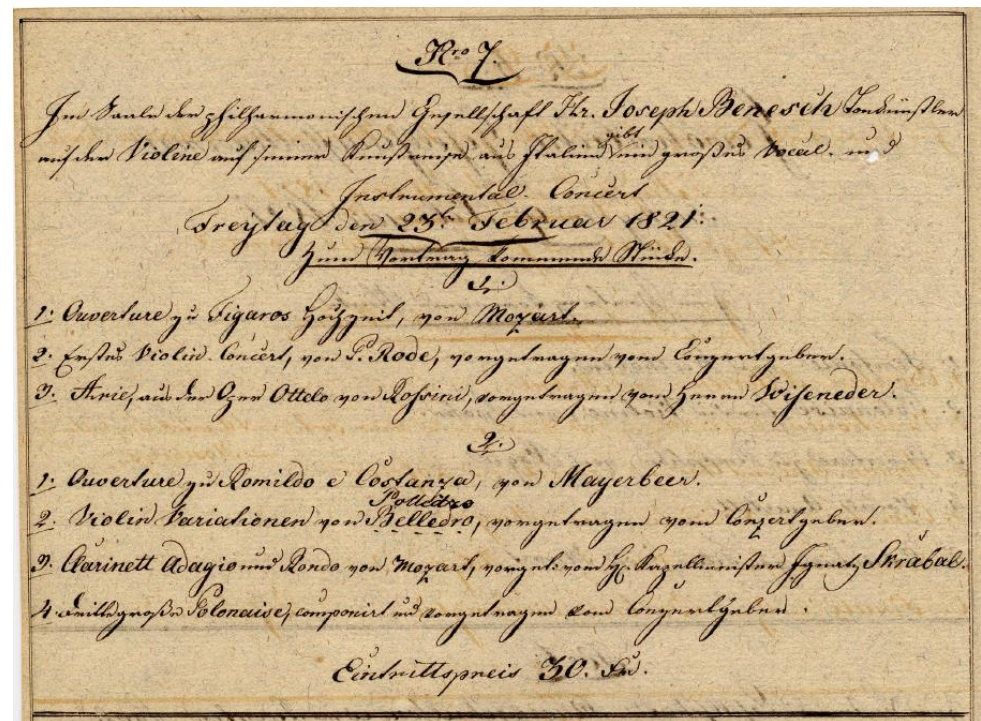 Nro 7.
Im Saale der philharmonischen Gesellschaft Hr. Joseph Benesch Tonkünstler
auf der Violine auf seiner Kunstreise aus Italien gibt ein großes Vocal- und
Instrumental-Concert
Freytag den 23t Februar 1821.
Zum Vortrag kommende Stücke.
1.
1. Ouverture zu Figaros Hochzeit, von Mozart.
2. Erstes Violin-Concert, von P. Rode, vorgetragen vom Conzertgeber.
3. Arie, aus der Oper Ottelo von Rossini, vorgetragen von Herrn Wiseneder.
2.
1. Ouverture zu Romildo e Costanza, von Mayerbeer.
Polledro
2. Violin Variationen von Belledro, vorgetragen vom Conzertgeber.
3. Clarinett Adagio und Rondo von Mozart, vorget: vom H. Kapellmeister Ignatz Skrabal.
4. Dritte große Polonaise, componirt und vorgetragen vom Conzertgeber.
Eintrittspreis 30.